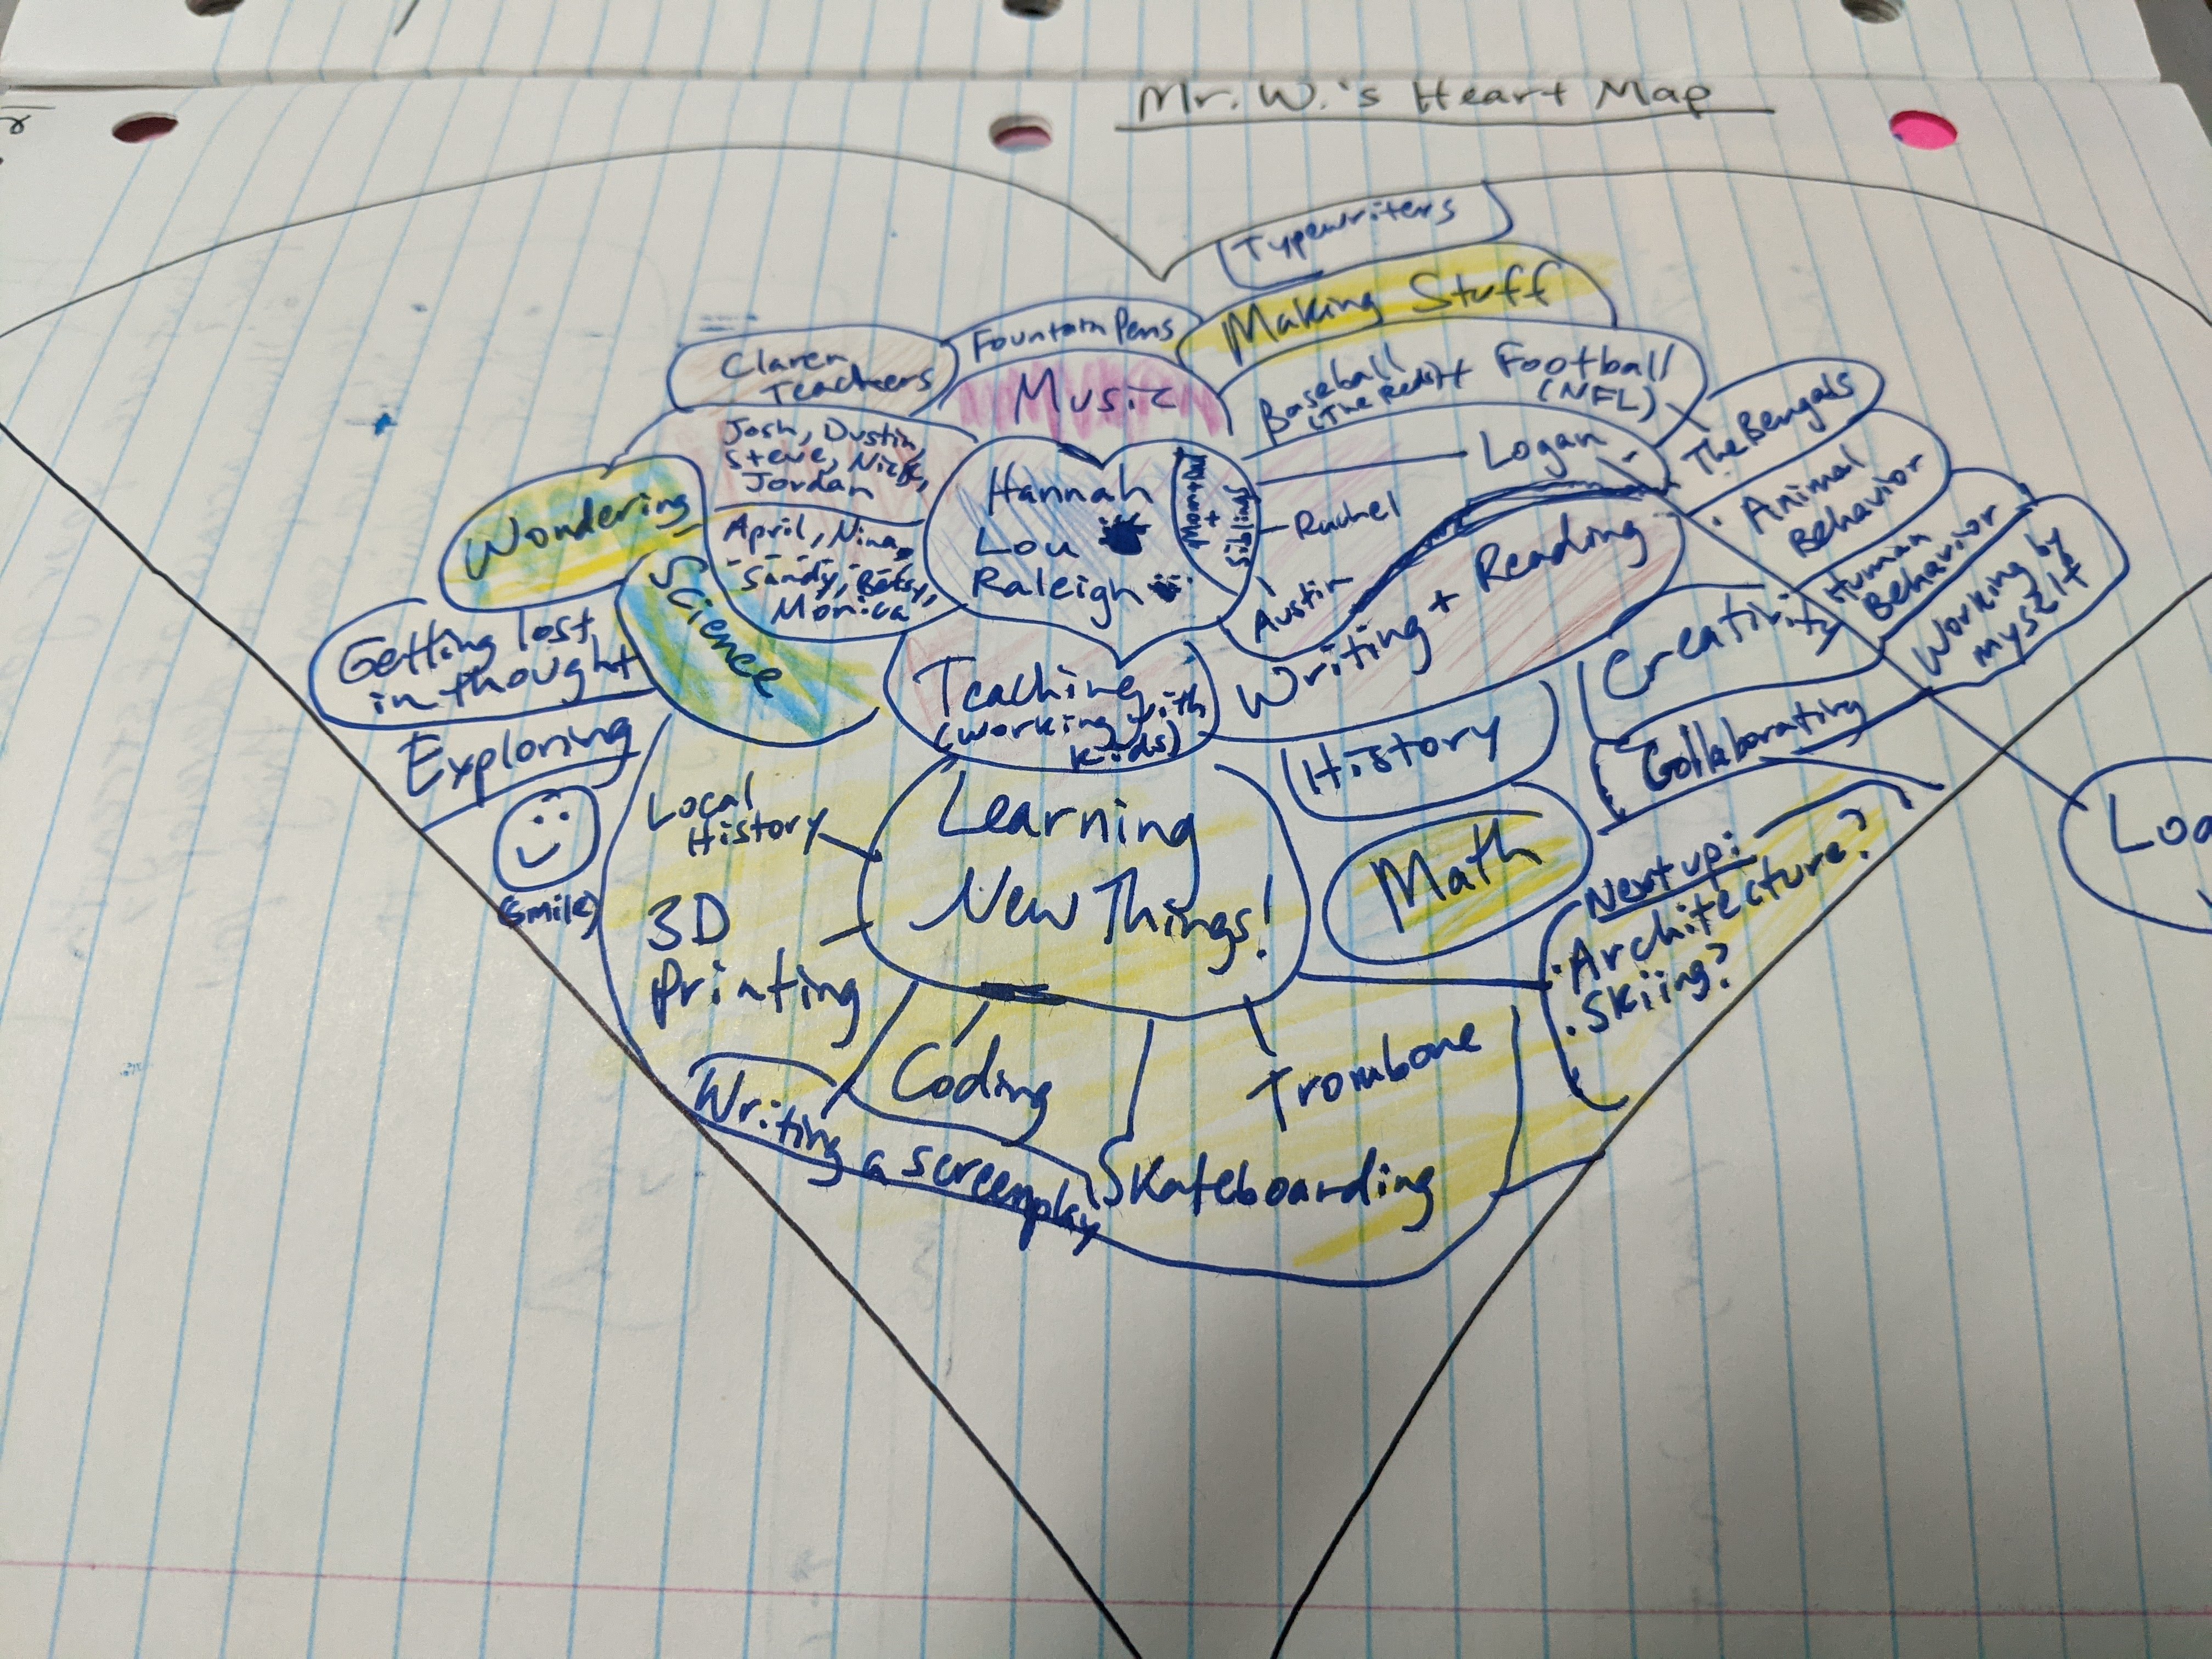 Mr. W.'s Heart Map
Typewriters
Making Stuff
Fountain Pens
Claren
Teachers
Music
Baseball
(The Reds) +
Football
(NFL)
The Bengals
Josh, Dustin,
Steve, Nick,
Jordan
Hannah
Lou
Raleigh
Mom +
Siblings
Logan
Rachel
Austin
Animal
Behavior
Wondering
April, Nina,
Sandy, Betsy,
Monica
Science
Writing + Reading
Human
Behavior
Working by
myself
Creativity
Getting lost
in thought
Teaching
(working with
kids)
History
Collaborating
Exploring
(smile)
Local
History
Learning
New Things!
Math
Next up:
• Architecture?
• Skiing?
3D
Printing
Coding
Trombone
Writing a screenplay
Skateboarding